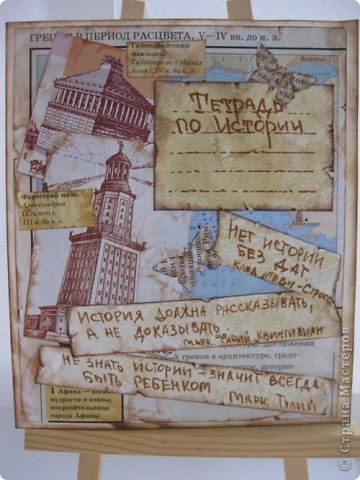 ГРЕЦИЯ В ПЕРИОД РАСЦВЕТА, V—IV вв. до н. э.
Галикарнасский
мавзолей.
Галикарнас (Малая
Азия). IV в. до н. э.
Тетрадь
по Истории
Фаросский маяк.
Александрия
(Египет).
III в. до н. э.
НЕТ ИСТОРИИ
БЕЗ ДАТ
КЛОД ЛЕВИ-СТРОСС
ИСТОРИЯ ДОЛЖНА РАССКАЗЫВАТЬ,
А НЕ ДОКАЗЫВАТЬ
МАРК ФАБИЙ КВИНТИЛИАН
достижения
греков в архитектуре, градо-
НЕ ЗНАТЬ ИСТОРИИ - ЗНАЧИТ ВСЕГДА
БЫТЬ РЕБЕНКОМ
МАРК ТУЛИЙ
1 Афина —
мудрости и войны,
покровительница
города Афины
© Страна Мастеров